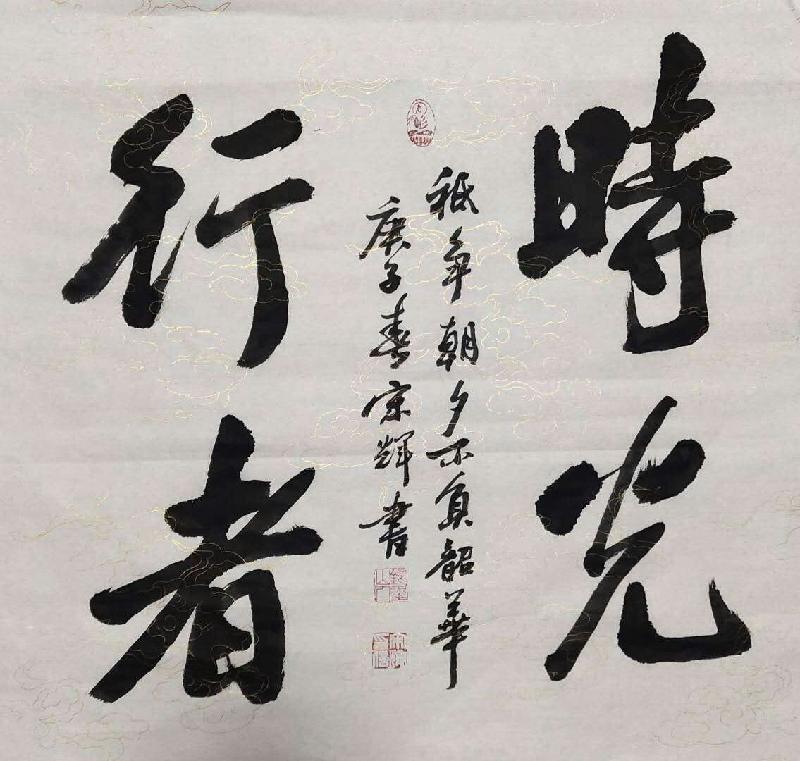 時光
行者
祗爭朝夕不負韶華
庚子春宗輝書